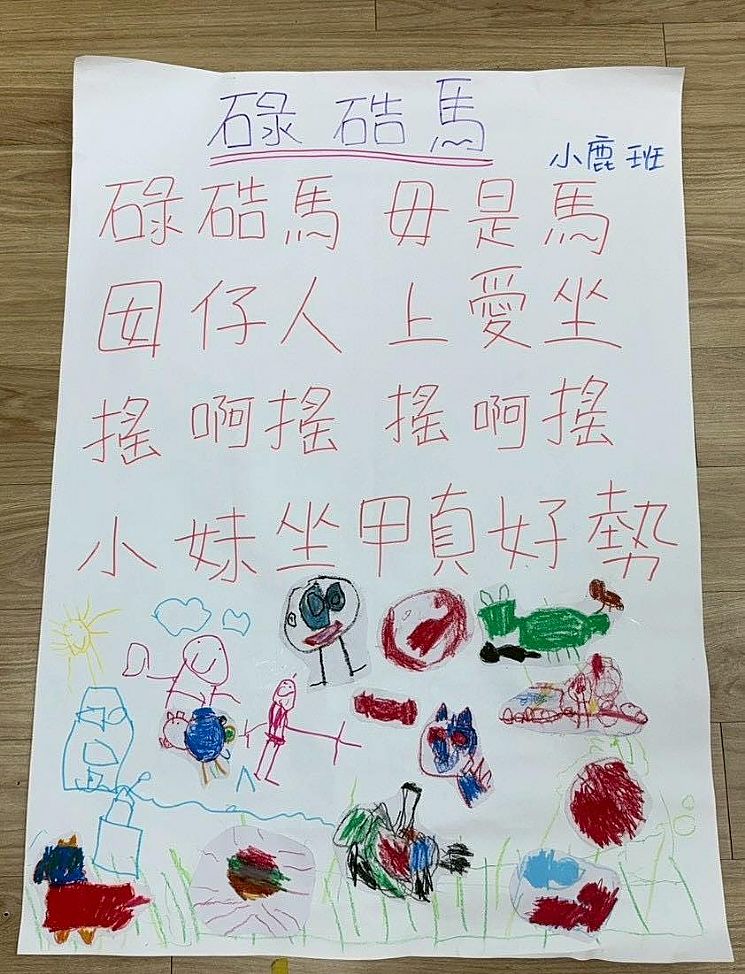 碌硞馬
小鹿班
碌硞馬 毋是馬
囡仔人 上愛坐
搖啊搖 搖啊搖
小妹坐甲真好勢